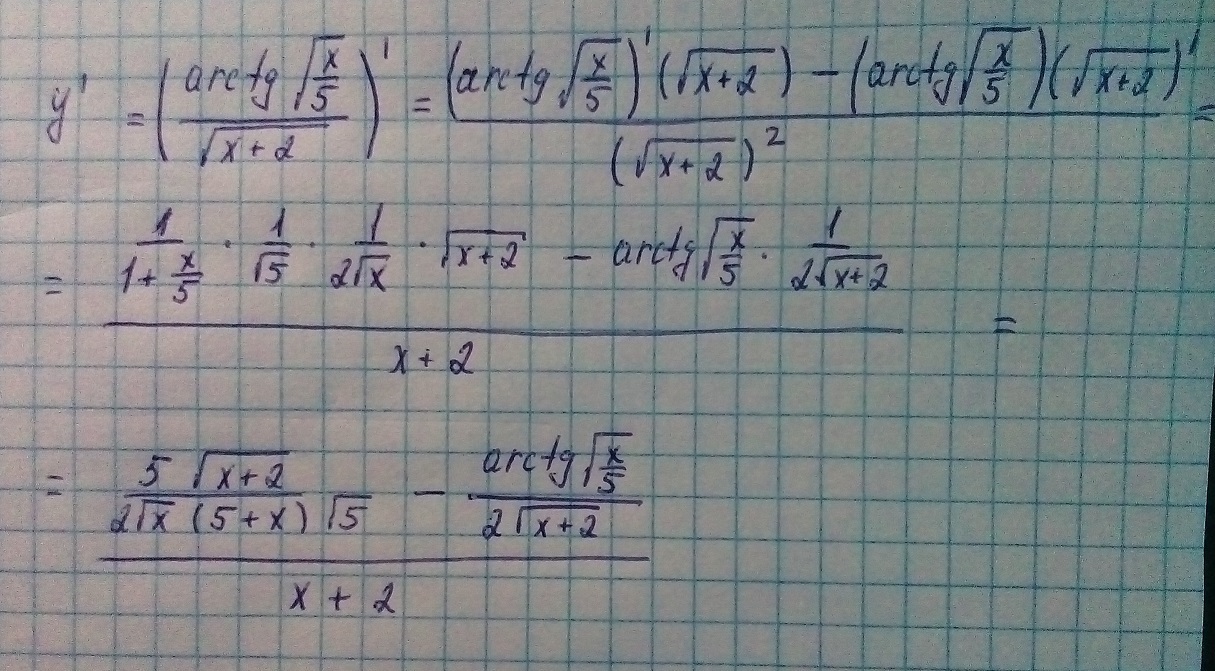 y' = (arctg √(x/5) / √(x+2))' = ((arctg √(x/5))' (√(x+2)) − (arctg √(x/5)) (√(x+2))') / (√(x+2))² =
= (1/(1 + x/5) · 1/√5 · 1/(2√x) · √(x+2) − arctg √(x/5) · 1/(2√(x+2))) / (x + 2) =
= (5 √(x+2) / (2√x (5 + x) √5) − arctg √(x/5) / (2√(x+2))) / (x + 2)